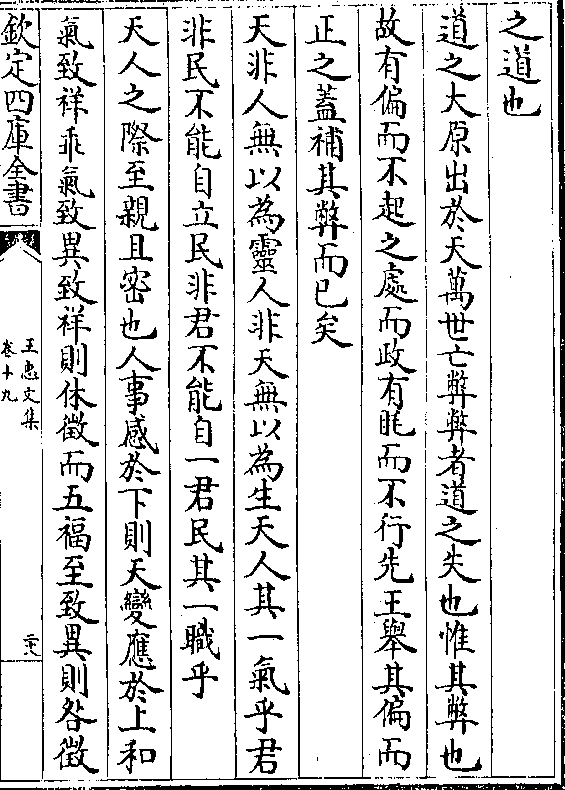 之道也
道之大原出於天萬世亡弊弊者道之失也惟其弊也
故有偏而不起之處而政有眊而不行先王舉其偏而
正之蓋補其弊而已矣
天非人無以為靈人非天無以為生天人其一氣乎君
非民不能自立民非君不能自一君民其一職乎
天人之際至親且密也人事感於下則天變應於上和
氣致祥乖氣致異致祥則休徵而五福至致異則咎徵
欽定四庫全書
王忠文集
卷十九
二十八